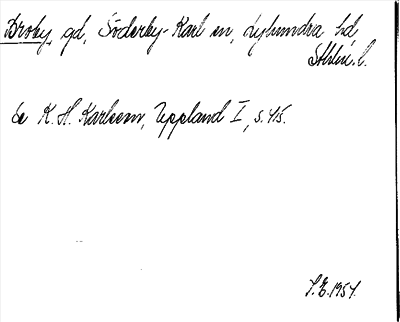 Broby, gd, Söderby-Karl sn, Lyhundra hd,
Sthlm. l.
Se K. H. Karlsson, Uppland I, s. 415.
S.E. 1954.